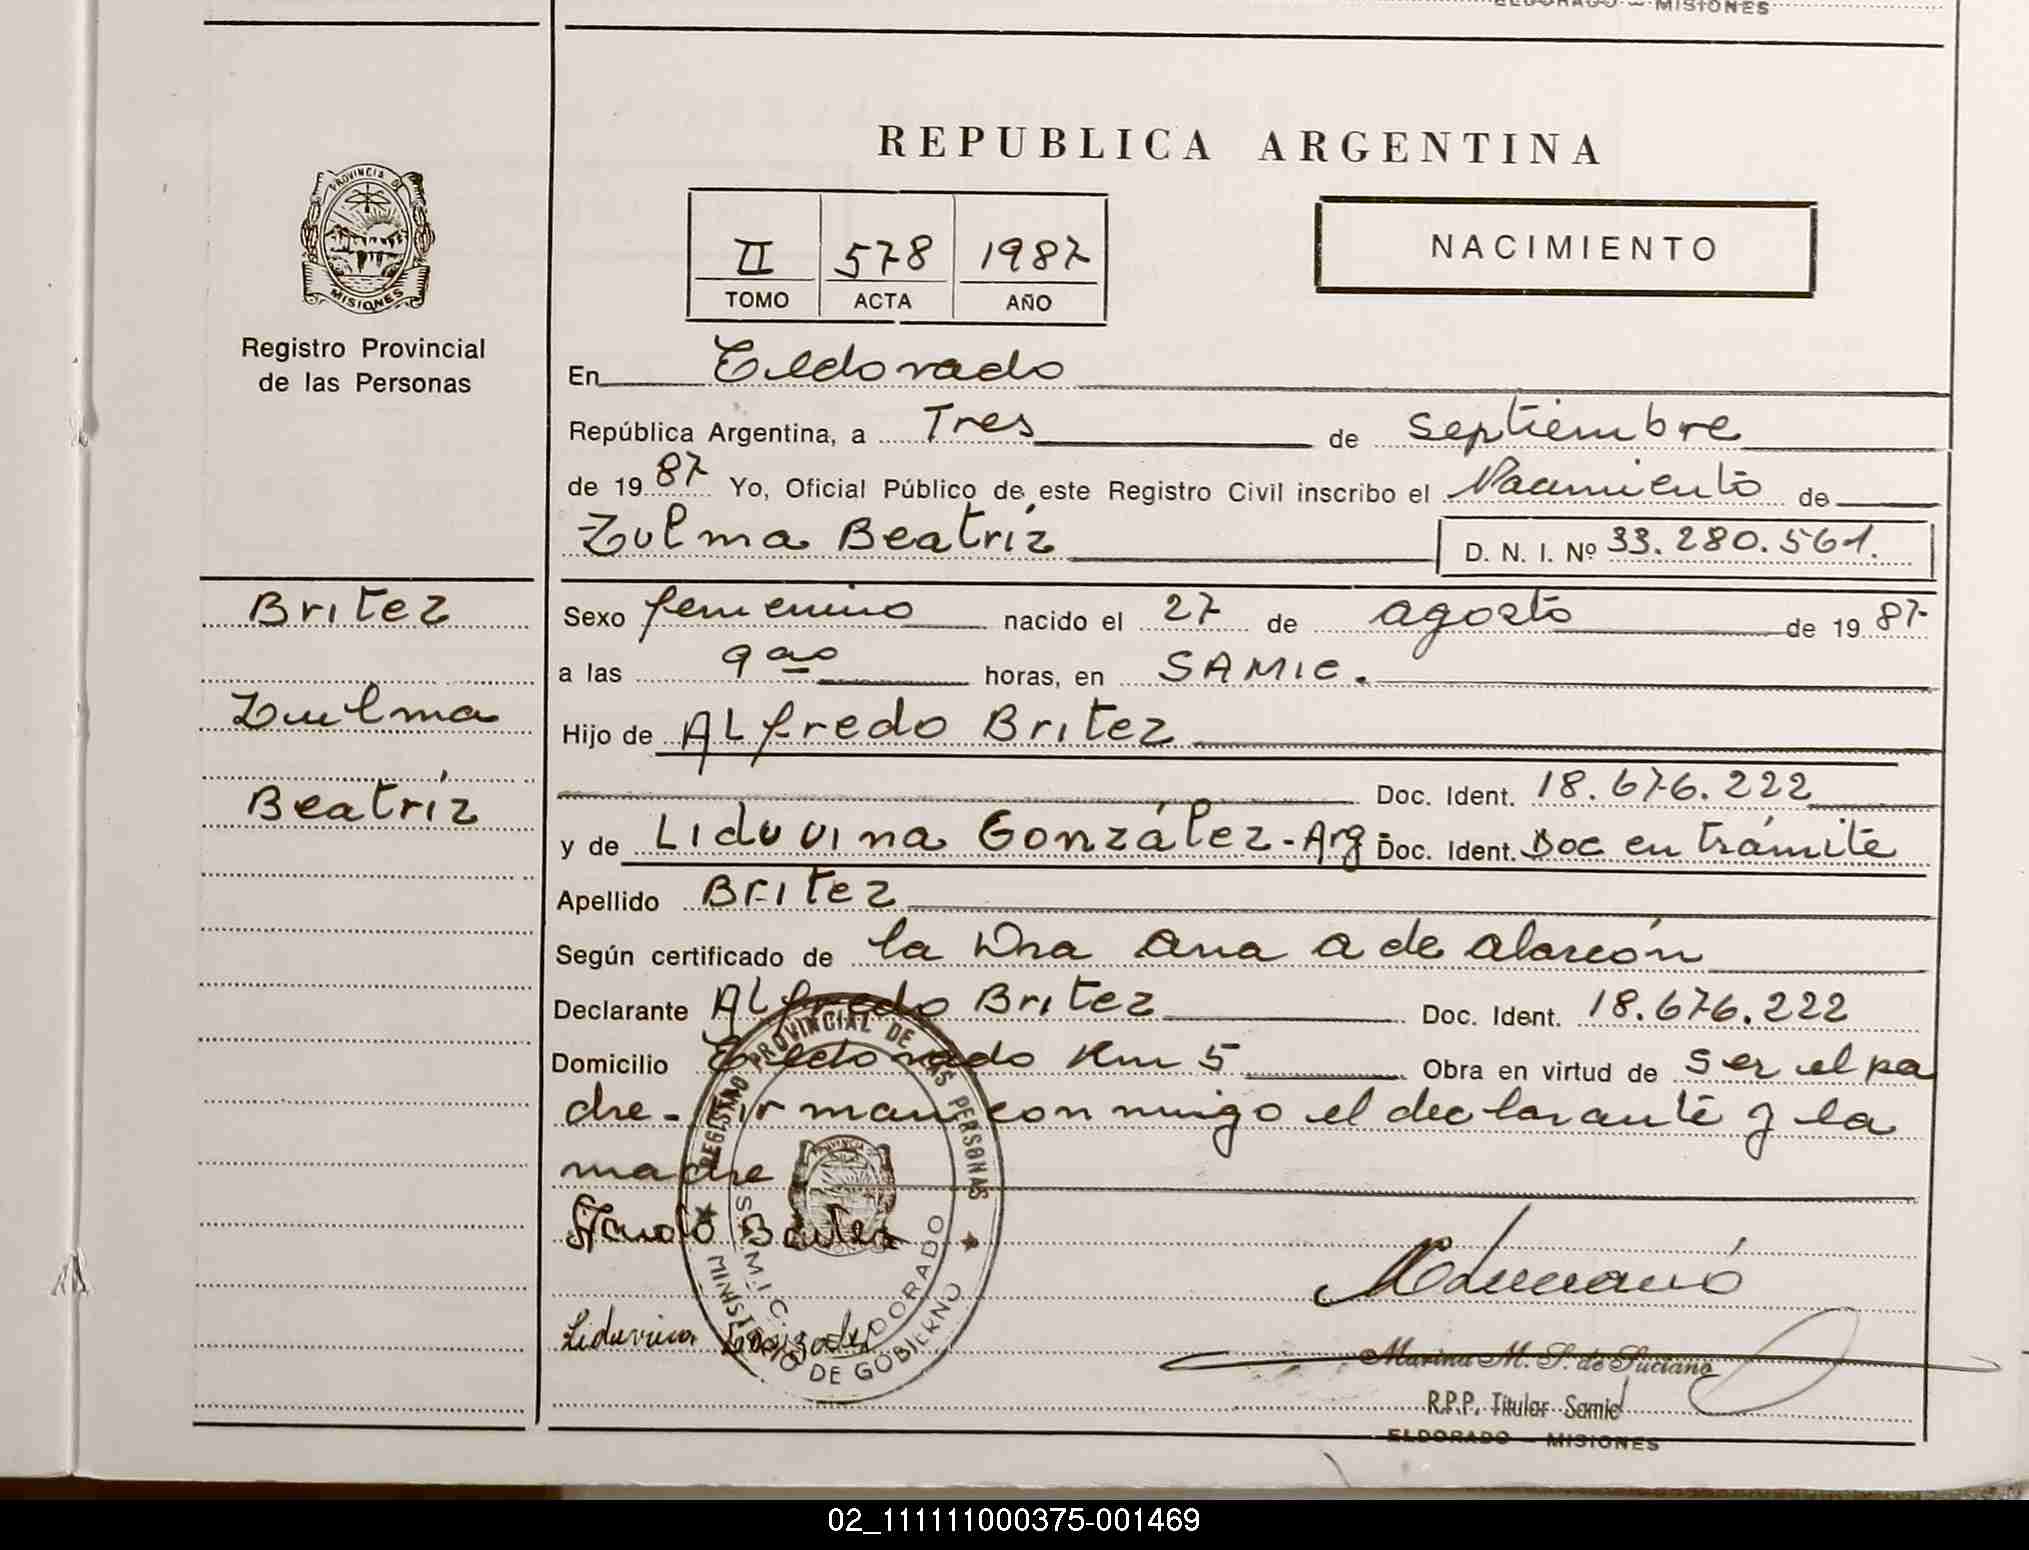 ELDORADO — MISIONES
REPUBLICA ARGENTINA
PROVINCIA DE
MISIONES
Registro Provincial
de las Personas
II 578 1987
TOMO ACTA AÑO
NACIMIENTO
En Eldorado
República Argentina, a Tres de septiembre
de 1987 Yo, Oficial Público de este Registro Civil inscribo el Nacimiento de
Zulma Beatríz D. N. I. Nº 33.280.561.
Britez
Zulma
Beatríz
Sexo femenino nacido el 27 de agosto de 1987
a las 9 horas, en SAMIC.
Hijo de Alfredo Britez
Doc. Ident. 18.676.222
y de Liduvina González-Arg- Doc. Ident. Doc en trámite
Apellido Britez
Según certificado de la Dra Ana A de Alarcón
Declarante Alfredo Britez Doc. Ident. 18.676.222
Domicilio Eldorado Km 5 Obra en virtud de ser el pa
dre-Firman conmigo el declarante y la
madre
Britez
Liduvina Gonzalez
REGISTRO PROVINCIAL DE LAS PERSONAS
S.A.M.I.C. ELDORADO
MINISTERIO DE GOBIERNO
Marina M. S. de Luciano
R.P.P. Titular Samic
ELDORADO — MISIONES
02_111111000375-001469